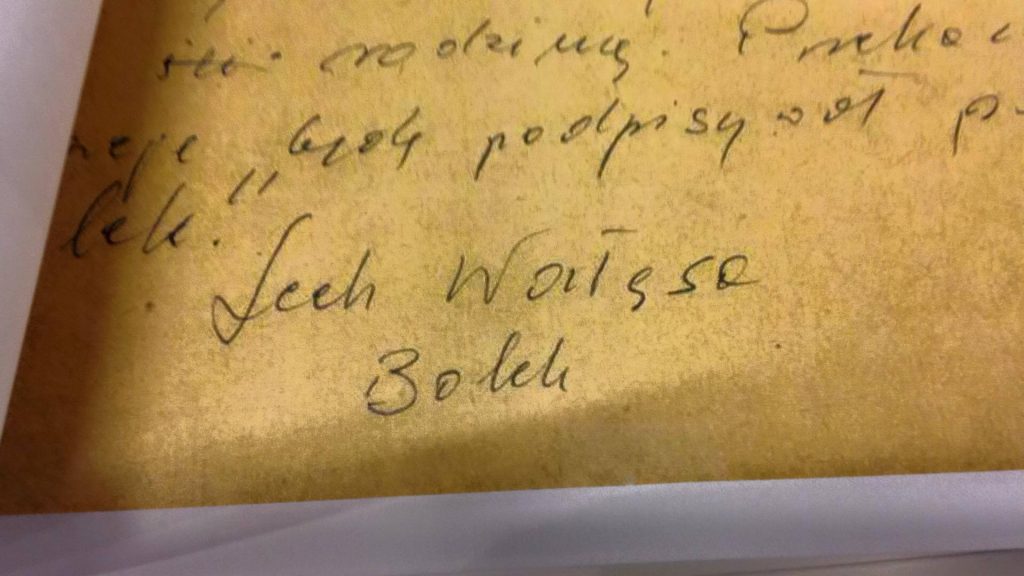 rodziną. Przeka
będę podpisywał p
lek."
Lech Wałęsa
Bolek